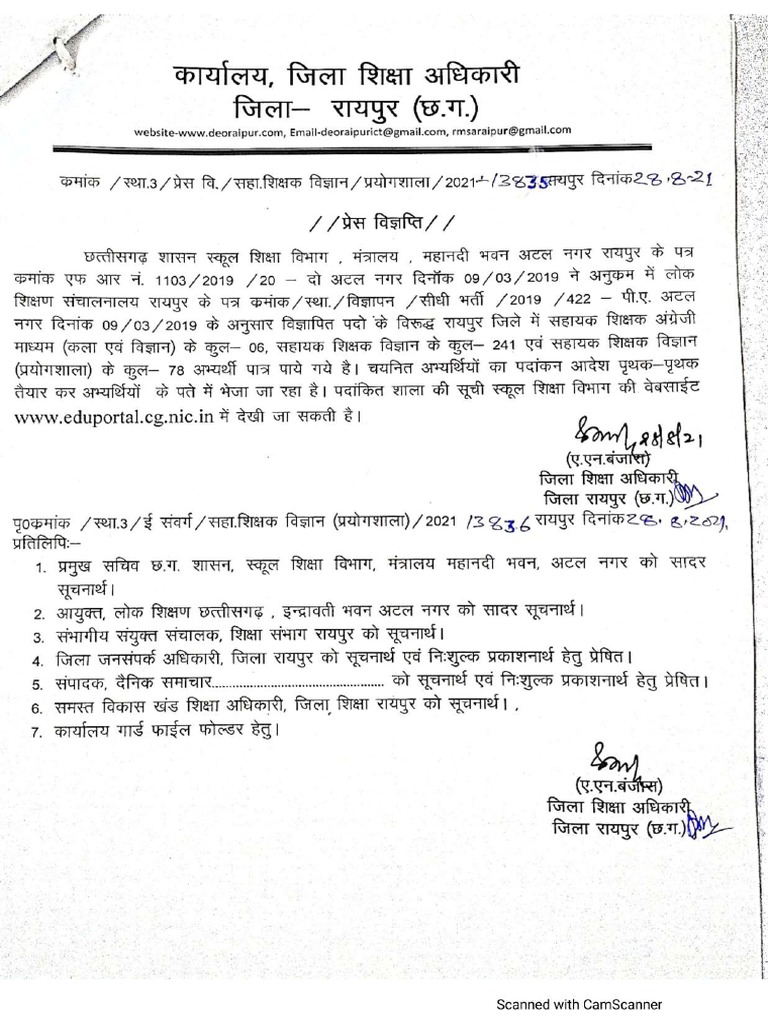 कार्यालय, जिला शिक्षा अधिकारी
जिला– रायपुर (छ.ग.)
website-www.deoraipur.com, Email-deoraipurict@gmail.com, rmsaraipur@gmail.com
कमांक /स्था.3/प्रेस वि./सहा.शिक्षक विज्ञान/प्रयोगशाला/2021-/13835रायपुर दिनांक28.8-21
//प्रेस विज्ञप्ति//
छत्तीसगढ़ शासन स्कूल शिक्षा विभाग , मंत्रालय , महानदी भवन अटल नगर रायपुर के पत्र
कमांक एफ आर नं. 1103/2019 /20 – दो अटल नगर दिनॉक 09/03/2019 ने अनुकम में लोक
शिक्षण संचालनालय रायपुर के पत्र कमांक/स्था./विज्ञापन /सीधी भर्ती /2019 /422 – पी.ए. अटल
नगर दिनांक 09/03/2019 के अनुसार विज्ञापित पदो के विरूद्ध रायपुर जिले में सहायक शिक्षक अंग्रेजी
माध्यम (कला एवं विज्ञान) के कुल– 06, सहायक शिक्षक विज्ञान के कुल– 241 एवं सहायक शिक्षक विज्ञान
(प्रयोगशाला) के कुल– 78 अभ्यर्थी पात्र पाये गये है। चयनित अभ्यर्थियों का पदांकन आदेश पृथक–पृथक
तैयार कर अभ्यर्थियों के पते में भेजा जा रहा है। पदांकित शाला की सूची स्कूल शिक्षा विभाग की वेबसाईट
www.eduportal.cg.nic.in में देखी जा सकती है।
28/8/21
(ए.एन.बंजारा)
जिला शिक्षा अधिकारी
जिला रायपुर (छ.ग.)
पृ0कमांक /स्था.3/ई संवर्ग/सहा.शिक्षक विज्ञान (प्रयोगशाला)/2021 /13836 रायपुर दिनांक28.8.2021.
प्रतिलिपिः–
1. प्रमुख सचिव छ.ग. शासन, स्कूल शिक्षा विभाग, मंत्रालय महानदी भवन, अटल नगर को सादर
सूचनार्थ।
2. आयुक्त, लोक शिक्षण छत्तीसगढ़ , इन्द्रावती भवन अटल नगर को सादर सूचनार्थ।
3. संभागीय संयुक्त संचालक, शिक्षा संभाग रायपुर को सूचनार्थ।
4. जिला जनसंपर्क अधिकारी, जिला रायपुर को सूचनार्थ एवं निःशुल्क प्रकाशनार्थ हेतु प्रेषित।
5. संपादक, दैनिक समाचार............................................... को सूचनार्थ एवं निःशुल्क प्रकाशनार्थ हेतु प्रेषित।
6. समस्त विकास खंड शिक्षा अधिकारी, जिला शिक्षा रायपुर को सूचनार्थ। ,
7. कार्यालय गार्ड फाईल फोल्डर हेतु।
(ए.एन.बंजारा)
जिला शिक्षा अधिकारी
जिला रायपुर (छ.ग.)
Scanned with CamScanner